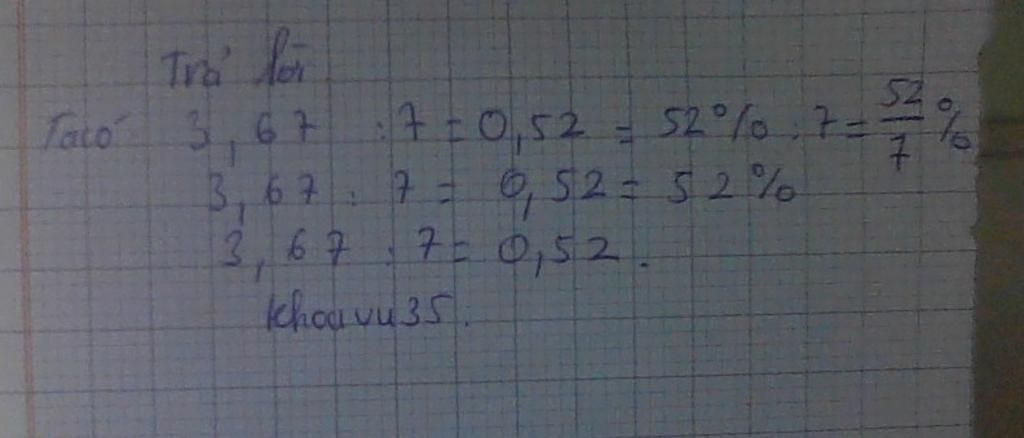 Trả lời
Ta có 3,67 : 7 = 0,52 = 52% : 7 = 52/7 %
3,67 : 7 = 0,52 = 52%
3,67 : 7 = 0,52.
khoavu35.